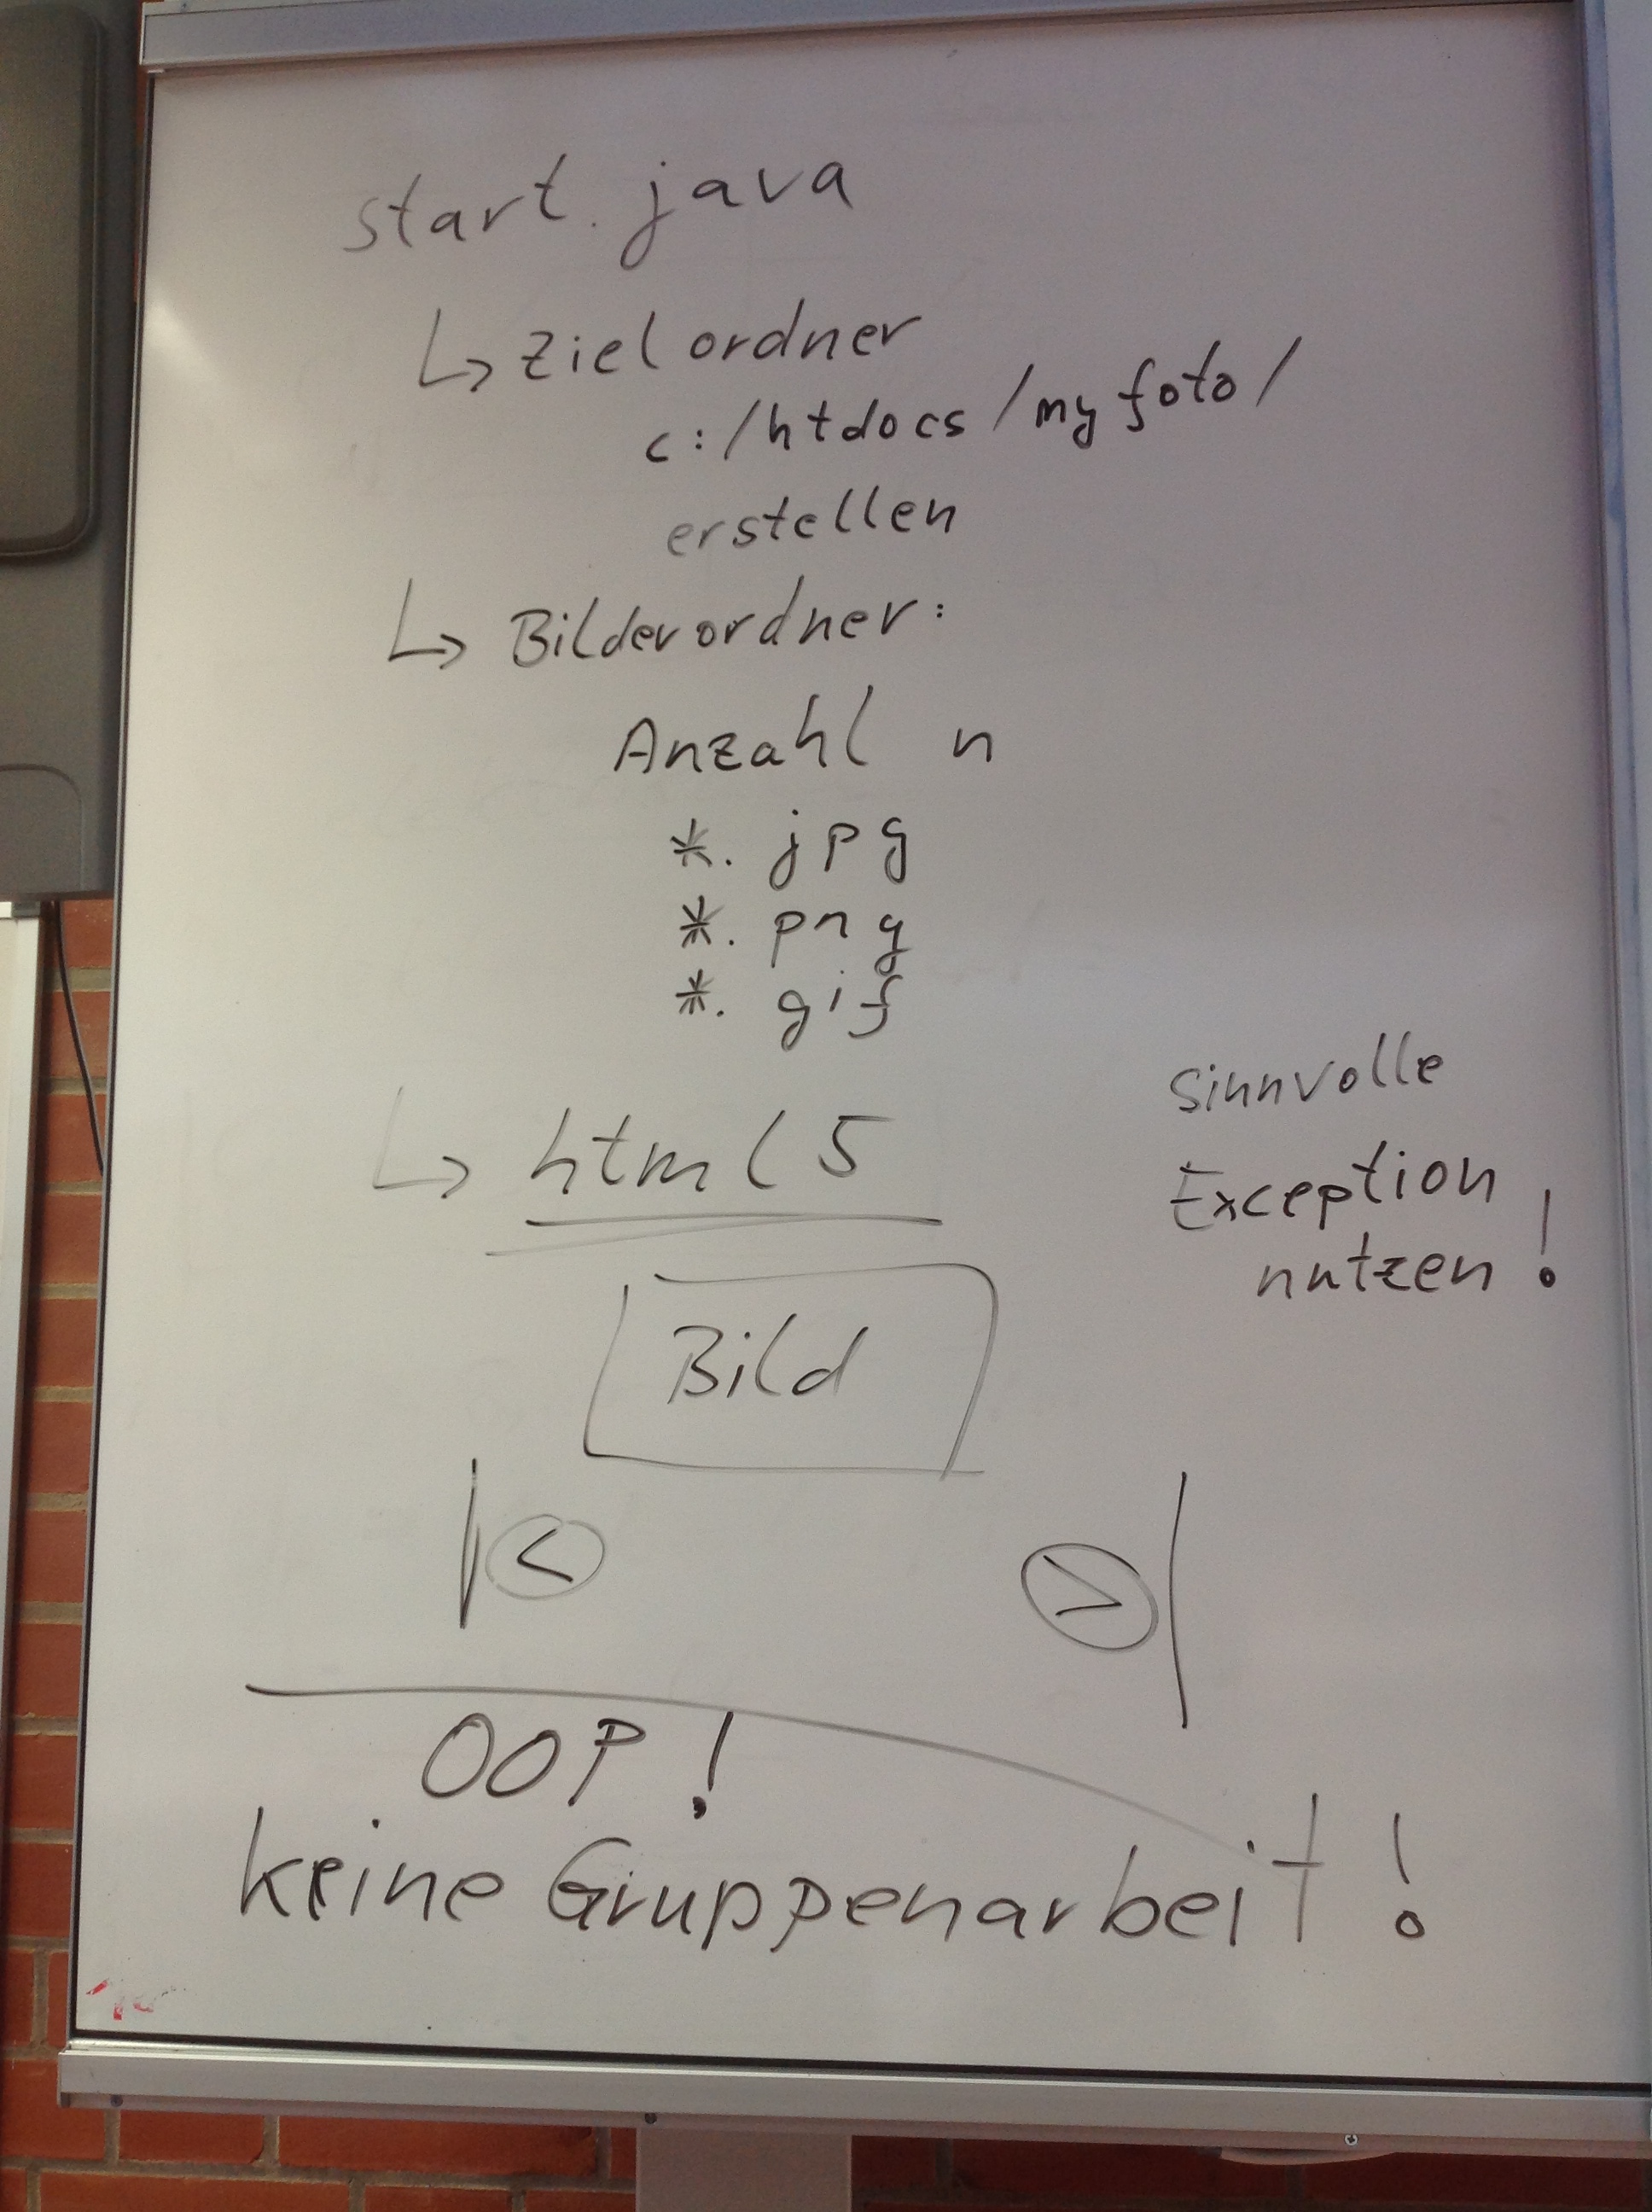 start.java
↳ Zielordner
c:/htdocs/myfoto/
erstellen
↳ Bilderordner:
Anzahl n
*.jpg
*.png
*.gif
↳ html5
sinnvolle
Exception
nutzen!
Bild
|<
>|
OOP!
keine Gruppenarbeit!